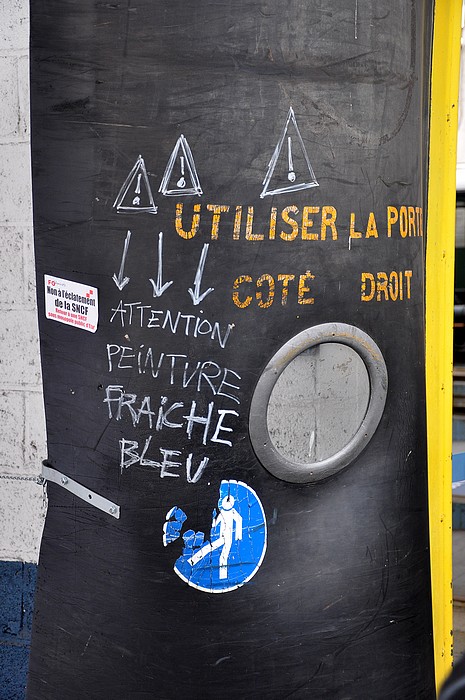 UTILISER LA PORTE
COTÉ DROIT
FO
Non à l'éclatement
de la SNCF
ATTENTION
PEINTURE
FRAICHE
BLEU